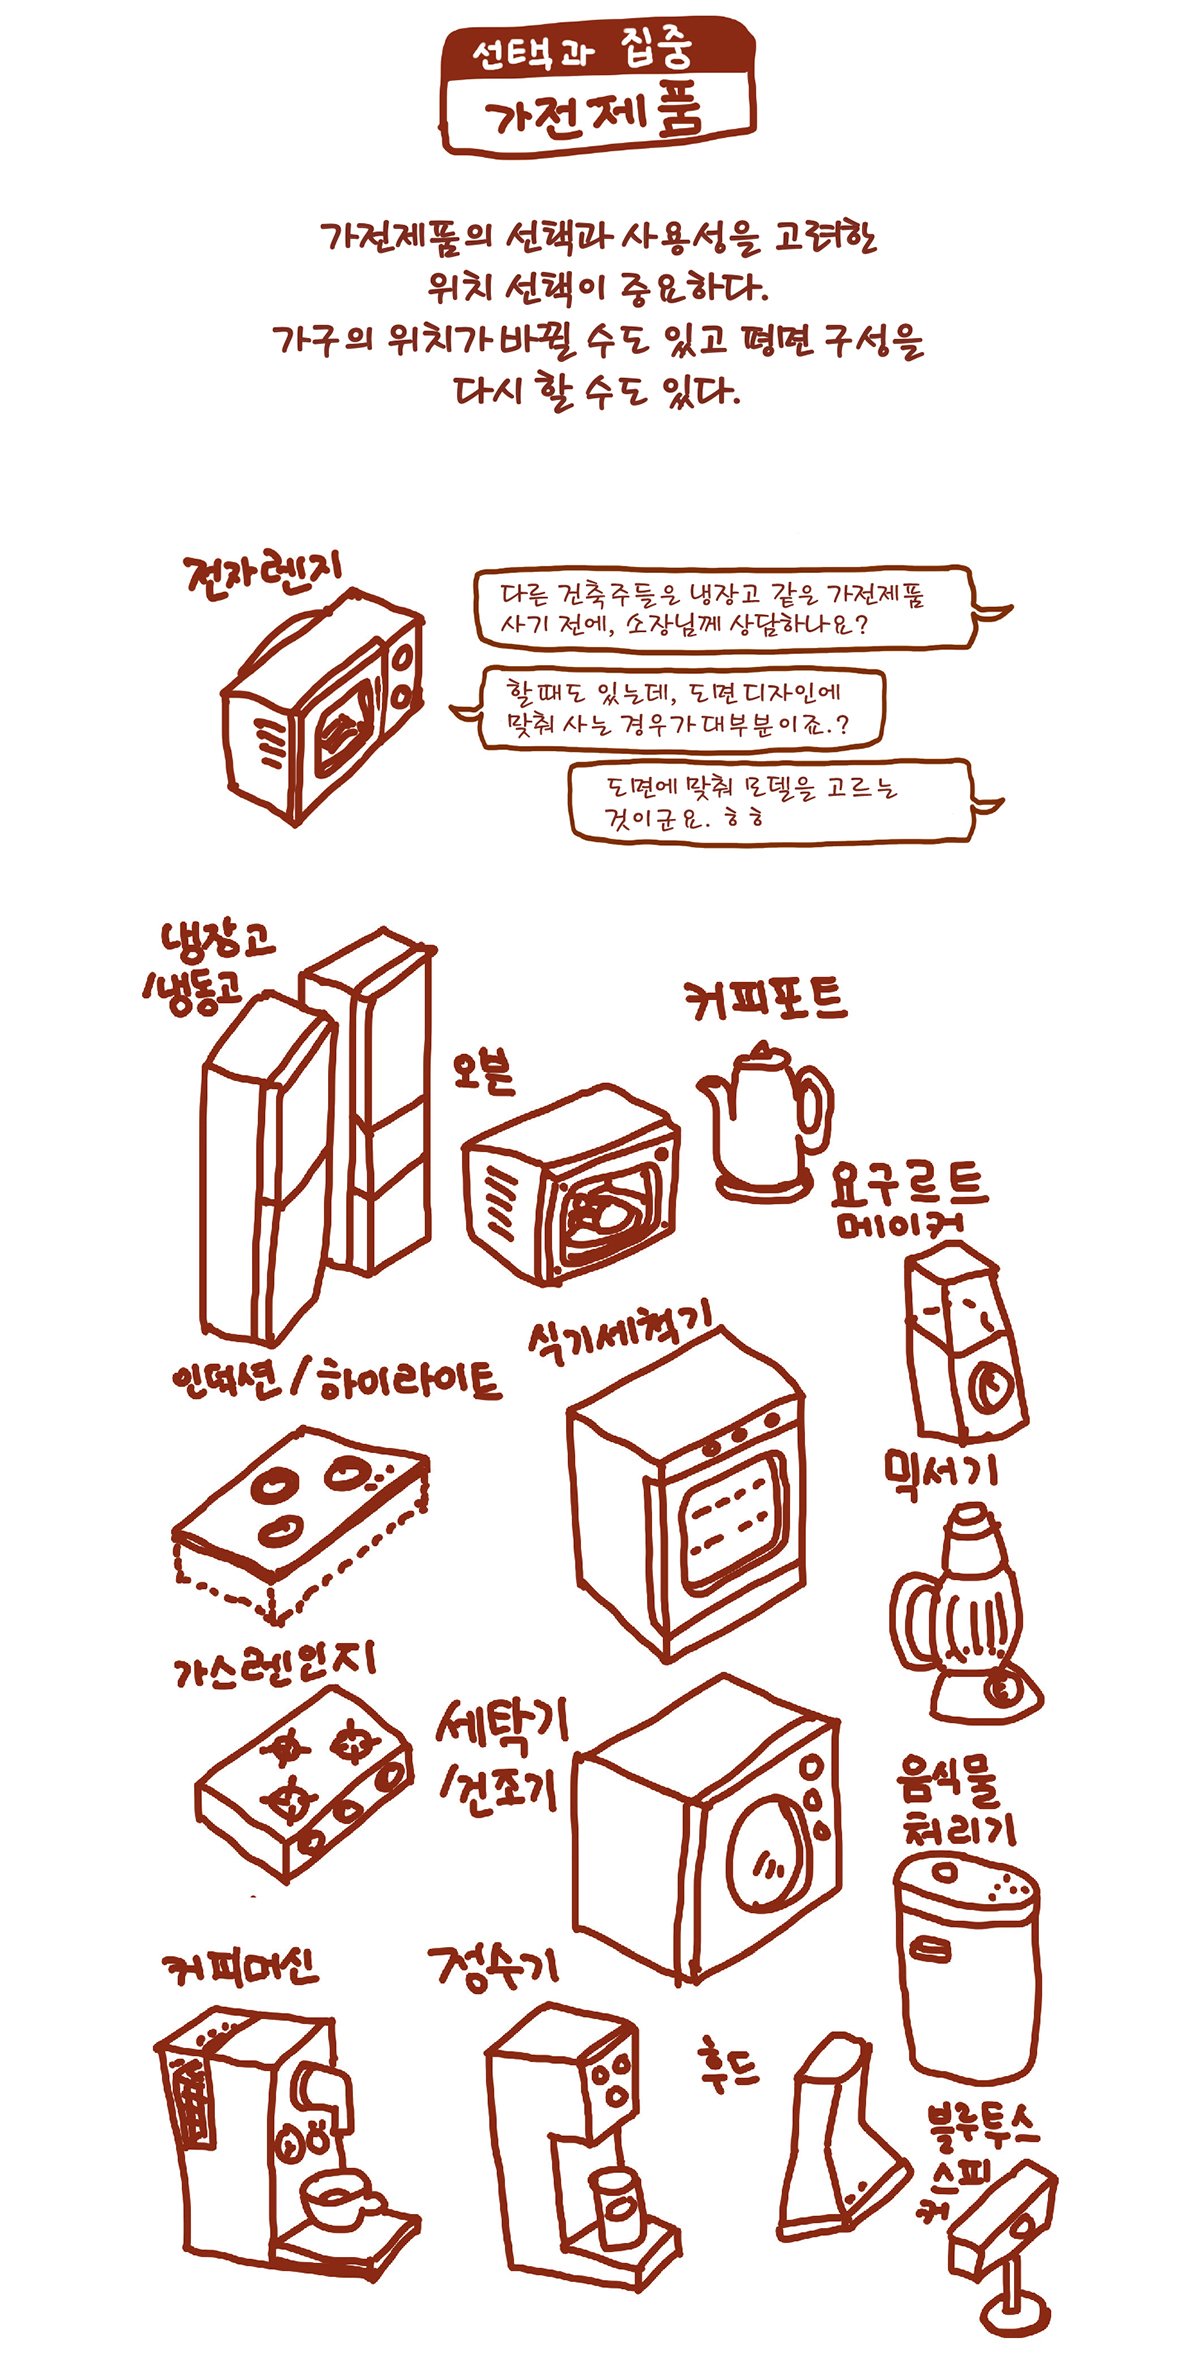 선택과 집중
가전제품
가전제품의 선택과 사용성을 고려한
위치 선택이 중요하다.
가구의 위치가 바뀔 수도 있고 평면 구성을
다시 할 수도 있다.
전자렌지
다른 건축주들은 냉장고 같은 가전제품
사기 전에, 소장님께 상담하나요?
할때도 있는데, 도면디자인에
맞춰 사는 경우가 대부분이죠.?
도면에 맞춰 모델을 고르는
것이군요. ㅎㅎ
냉장고
/냉동고
오븐
커피포트
요구르트
메이커
인덕션 / 하이라이트
식기세척기
믹서기
가스렌인지
세탁기
/건조기
음식물
처리기
커피머신
정수기
후드
블루투스
스피
커